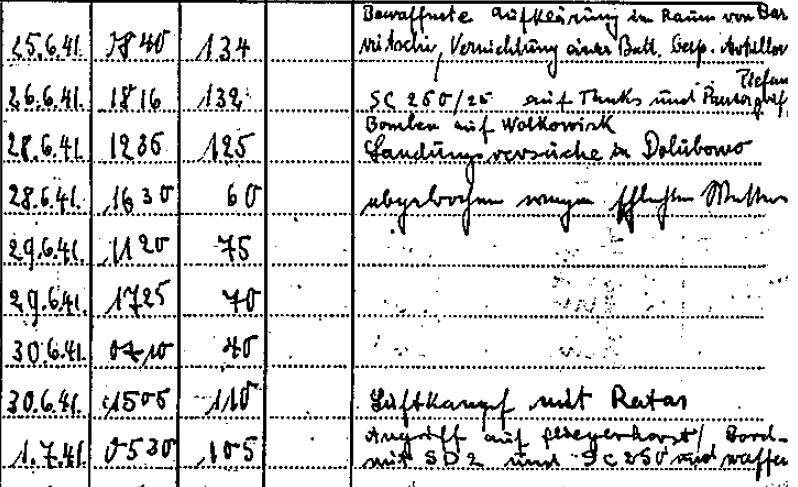 Bewaffnete Aufklärung im Raum von Bar
25.6.41. 1840 134 Vernichtung einer Batt. besp. Artiller
26.6.41. 1816 132 SC 250/25 auf Tanks und
Bomben auf Wolkowisk
28.6.41. 1235 125 Landungsversuche in Dolubowo
28.6.41. 1630 60 abgebrochen wegen schlechten Wetters
29.6.41. 1120 75
29.6.41. 1725 70
30.6.41. 0710 40
30.6.41. 1505 110 Luftkampf mit Ratas
Angriff auf Fliegerhorst/ Bord-
1.7.41. 0530 105 mit SD2 und SC250 und waffen